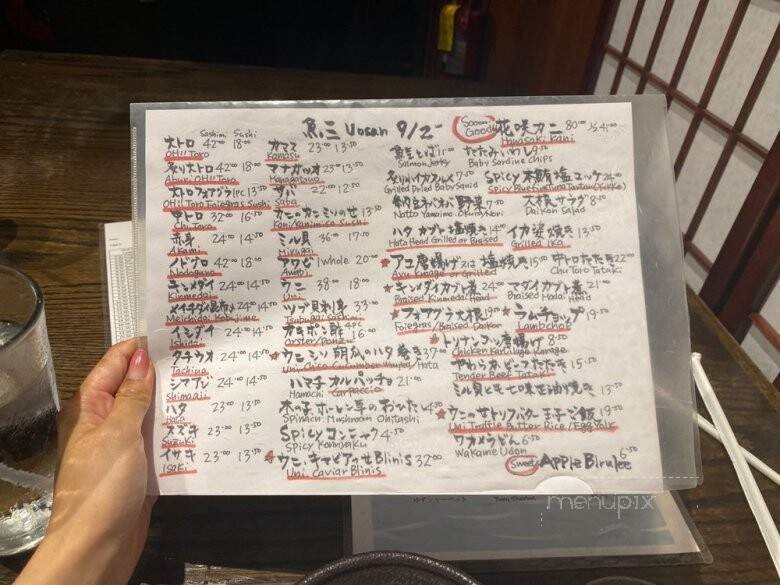 魚三 Uosan 9/2
Sashimi Sushi
大トロ 42.00 18.00
OH!! Toro
炙り大トロ 42.00 18.00
Aburi OH!! Toro
大トロフォアグラ 1pc 13.50
OH!! Toro Foiegras Sushi
中トロ 32.00 16.50
Chu Toro
赤身 24.00 14.50
Akami
ノドグロ 42.00 18.00
Nodoguro
キンメダイ 24.00 14.50
Kinmedai
メイチダイ昆布〆 24.00 14.50
Meichidai
イシダイ 24.00 14.50
Ishidai
タチウオ 24.00 14.50
Tachiuo
シマアジ 24.00 14.50
Shimaaji
ハタ 23.00 13.50
Hata
スズキ 23.00 13.50
Suzuki
イサキ 23.00 13.50
Isaki
カマス 23.00 13.50
Kamasu
マナガツオ 23.00 13.50
Managatsuo
サバ 22.00 12.50
Saba
カニのカニミソのせ 13.50
Kani/Kanimiso Sushi
ミル貝 36.00 17.50
Mirugai
アワビ 1whole 20.00
Awabi
ウニ 38.00 18.00
Uni
ツブ貝刺身 33.00
Tsubugai Sashimi
カキポン酢 4pc 16.00
Oyster/Ponzu
ウニ シソ 朝瓜のハタ巻き 37.00
Uni Shiso Cucumber Wrapped/Hata
ハマチ カルパッチョ 21.00
Hamachi Carpaccio
木の子ホーレン草のおひたし 4.50
Spinach Mushroom Ohitashi
Spicy コンニャク 4.50
Spicy Konnyaku
ウニ、キャビアのせ Blinis 32.00
Uni Caviar Blinis
Soooo Good!!
花咲カニ 80.00 1/2 41.00
Hanasaki Kani
魚まとば 11.00
Salmon Jerky
たたみいわし 8.50
Baby Sardine Chips
炙りイカスルメ 7.50
Grilled Dried Baby Squid
Spicy 本鮪塩ユッケ 24.00
Spicy Bluefin Tuna Tartar (Yukke)
納豆ネバネバ野菜 7.50
Natto Yamaimo Okura Nori
大根サラダ 8.50
Daikon Salad
ハタ カブト 塩焼き 14.00
Hata Head Grilled or Braised
イカ姿焼き 13.50
Grilled Ika
アユ唐揚げ又は塩焼き 15.00
Ayu Karage or Grilled
中トロたたき 22.00
Chu Toro Tataki
キンメダイカブト煮 24.00
Braised Kinmedai Head
マダイカブト煮 21.00
Braised Madai Head
フォアグラ大根 19.00
Foiegras/Braised Daikon
ラムチョップ 19.50
Lambchop
トリナンコツ唐揚げ 8.50
Chicken Cartilage Karage
やわらか、ビーフたたき 15.50
Tender Beef Tataki
ミル貝ヒモ七味正油焼き 13.50
ウニのせトリュフバター玉子ご飯 19.50
Uni Truffle Butter Rice/Egg Yolk
ワカメうどん 6.50
Wakame Udon
Sweet Apple Birulee 6.50
menupix